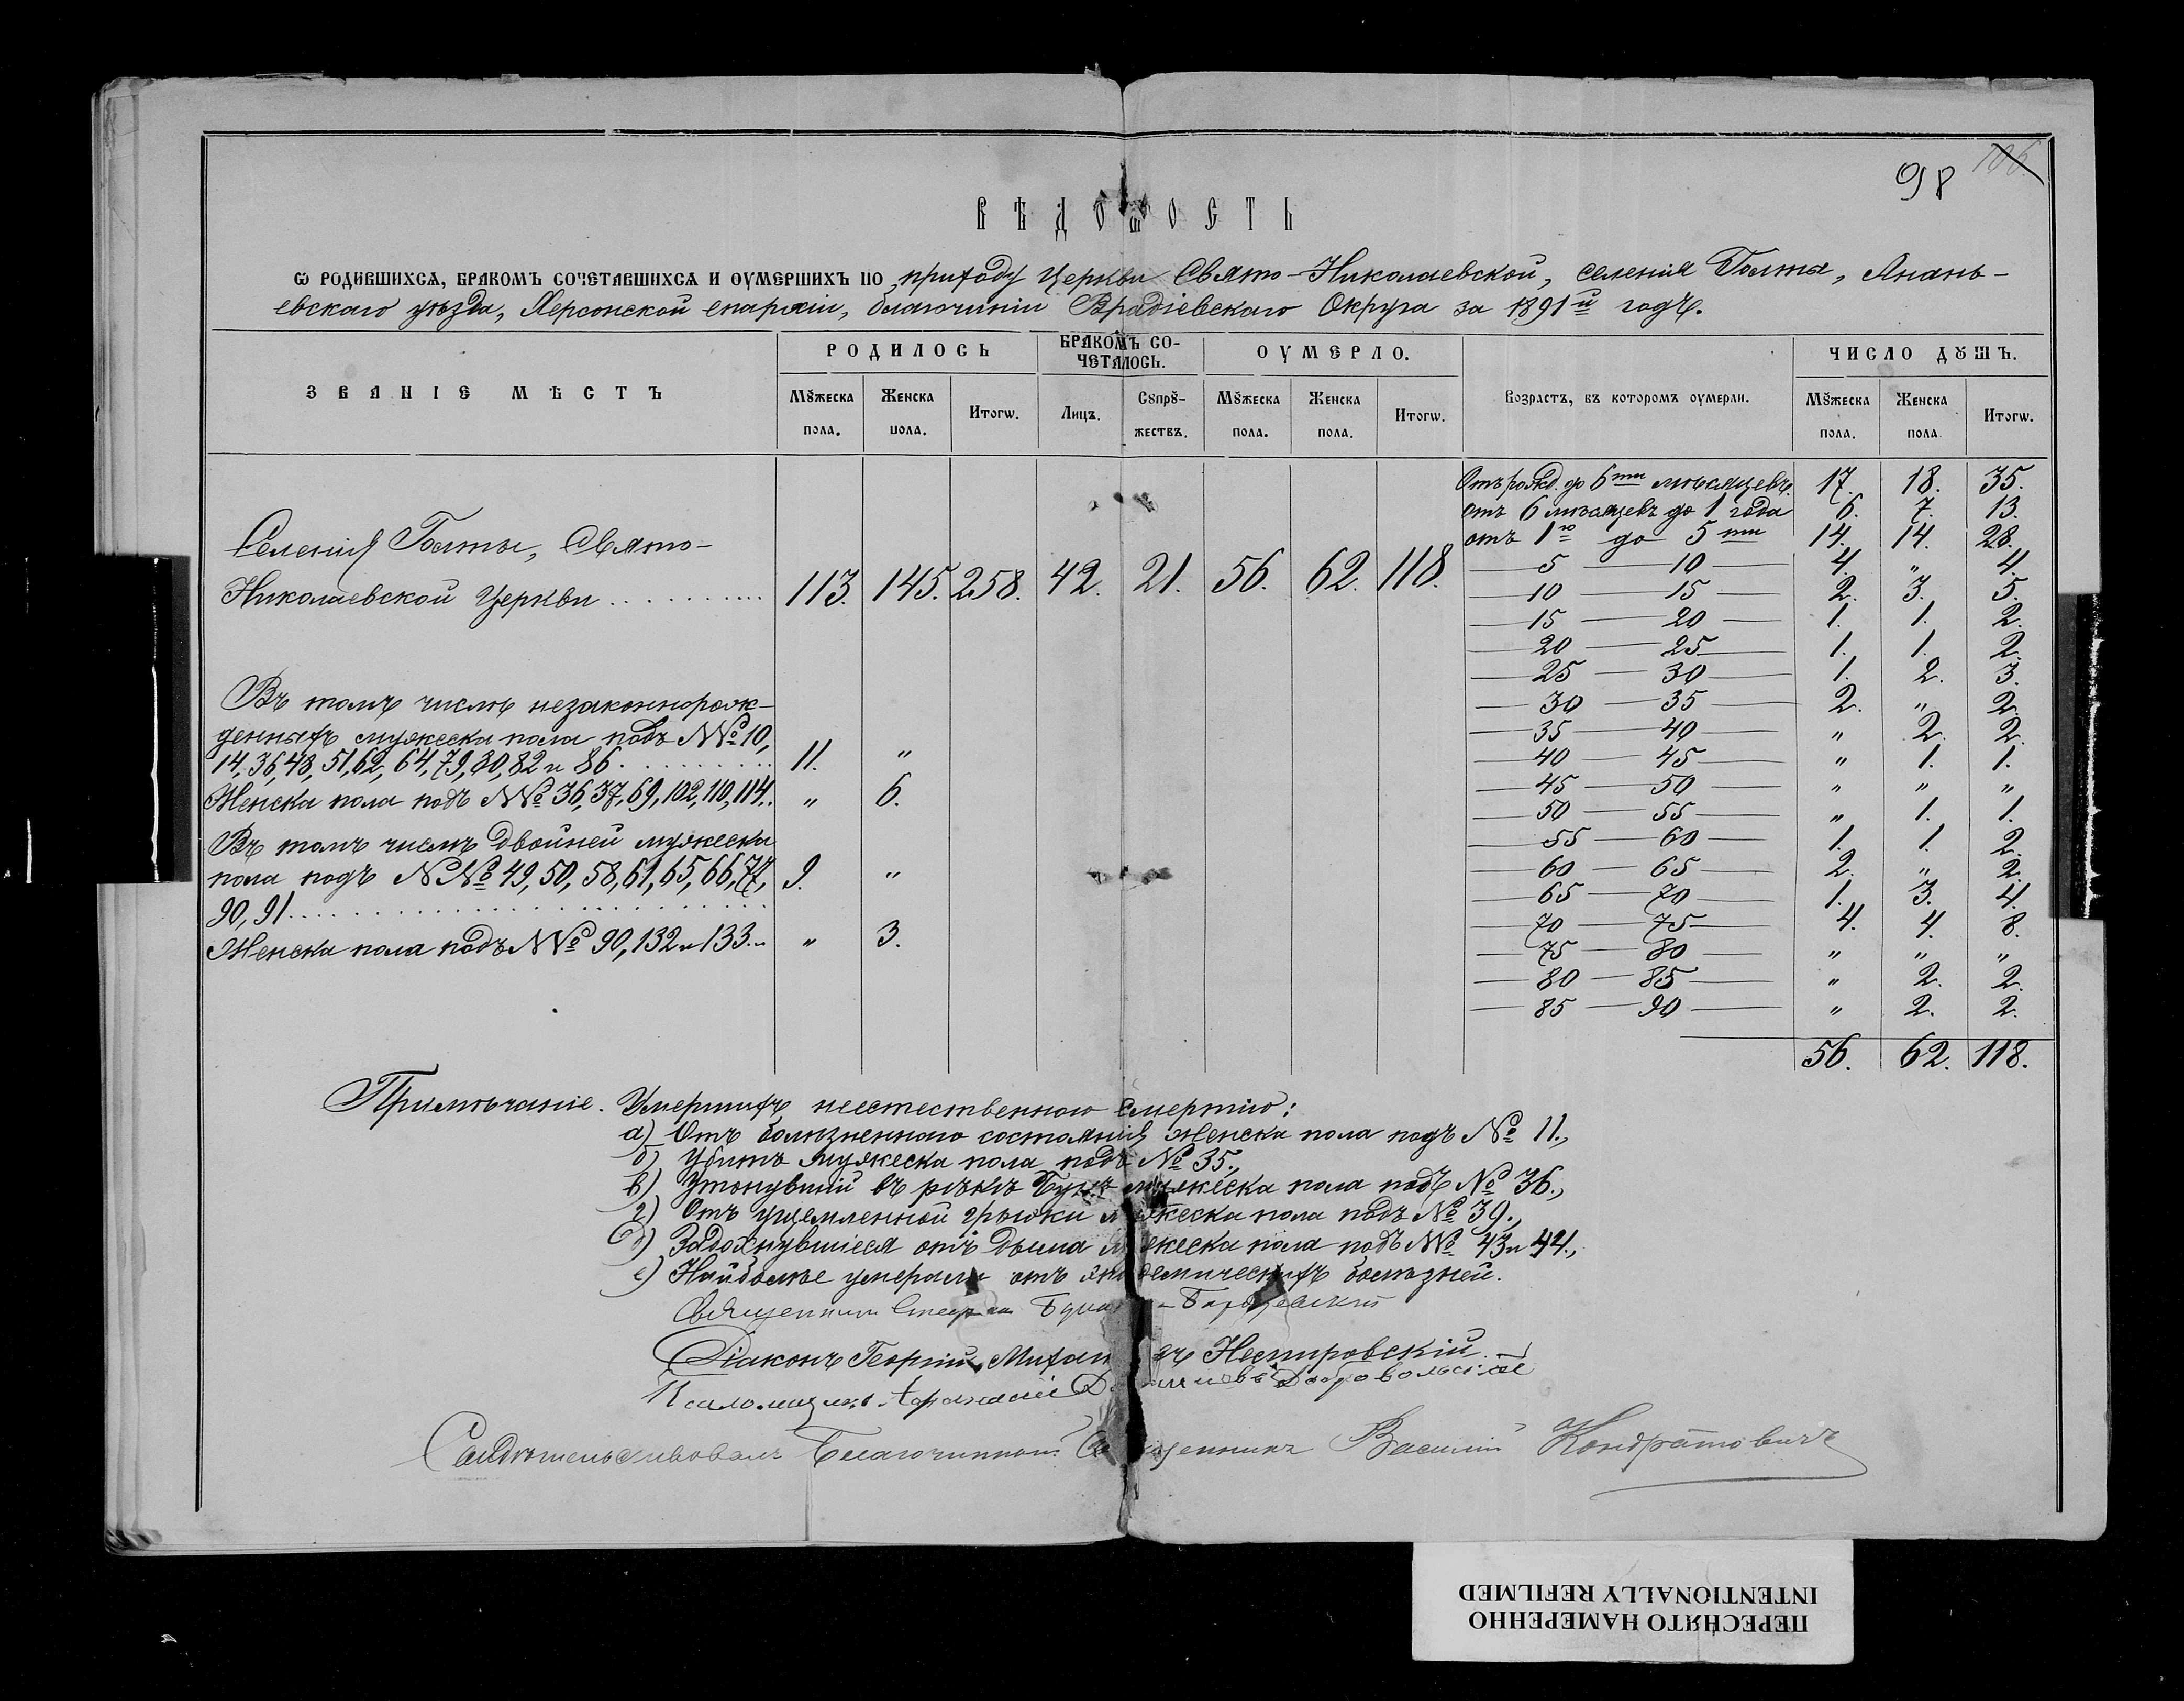 98 106
ВѢДОМОСТЬ
Ѡ РОДИВШИХСѦ, БРАКОМЪ СОЧЕТАВШИХСѦ И ОУМЕРШИХЪ ПО приходу Церкви Свято-Николаевской, селенія Голты, Анань-
евскаго уѣзда, Херсонской епархіи, благочинія Врадіевскаго Округа за 1891й годъ.
ЗВАНІЕ МѢСТЪ
РОДИЛОСЬ
БРАКОМЪ СО-
ЧЕТАЛОСЬ.
ОУМЕРЛО.
Возрастъ, въ которомъ оумерли.
ЧИСЛО ДꙊШЪ.
Мꙋжеска пола. Женска пола. Итогѡ. Лицъ. Сꙋпрꙋ-жествъ. Мꙋжеска пола. Женска пола. Итогѡ. Мꙋжеска пола. Женска пола. Итогѡ.
Селенія Голты, Свято-
Николаевской Церкви 113. 145. 258. 42. 21. 56. 62. 118.
Въ томъ числѣ незаконнорож-
денныхъ мужеска пола подъ №№ 10,
14, 36, 48, 51, 62, 64, 79, 80, 82 и 86. 11. "
Женска пола подъ №№ 36, 37, 69, 102, 110, 114. " 6.
Въ томъ числѣ двойней мужеска
пола подъ №№ 49, 50, 58, 61, 65, 66, 74, 9. "
90, 91
Женска пола подъ №№ 90, 132 и 133. " 3.
Отъ рожд. до 6ти мѣсяцевъ. 17. 18. 35.
отъ 6 мѣсяцевъ до 1 года 6. 7. 13.
отъ 1го до 5ти 14. 14. 28.
5 — 10 4. " 4.
10 — 15 2. 3. 5.
15 — 20 1. 1. 2.
20 — 25 1. 1. 2.
25 — 30 1. 2. 3.
30 — 35 2. " 2.
35 — 40 " 2. 2.
40 — 45 " 1. 1.
45 — 50 " " "
50 — 55 " 1. 1.
55 — 60 1. 1. 2.
60 — 65 2. " 2.
65 — 70 1. 3. 4.
70 — 75 4. 4. 8.
75 — 80 " " "
80 — 85 " 2. 2.
85 — 90 " 2. 2.
56. 62. 118.
Примѣчаніе. Умершихъ неестественною смертію:
а) Отъ болѣзненнаго состоянія женска пола подъ № 11.,
б) Убитъ мужеска пола подъ № 35.,
в) Утонувшій въ рѣкѣ Бугъ мужеска пола подъ № 36.,
г) Отъ ущемленной грыжи мужеска пола подъ № 39.,
д) Задохнувшіеся отъ дыма мужеска пола подъ №№ 43 и 44.,
е) Наиболѣе умерали отъ эпидемическихъ болѣзней.
Священникъ
Діаконъ Георгій Нестеровскій
Псаломщикъ Добровольскій
Свидѣтельствовалъ Благочинный Священникъ Василій Кондратовичъ
ПЕРЕСНЯТО НАМЕРЕННО
INTENTIONALLY REFILMED